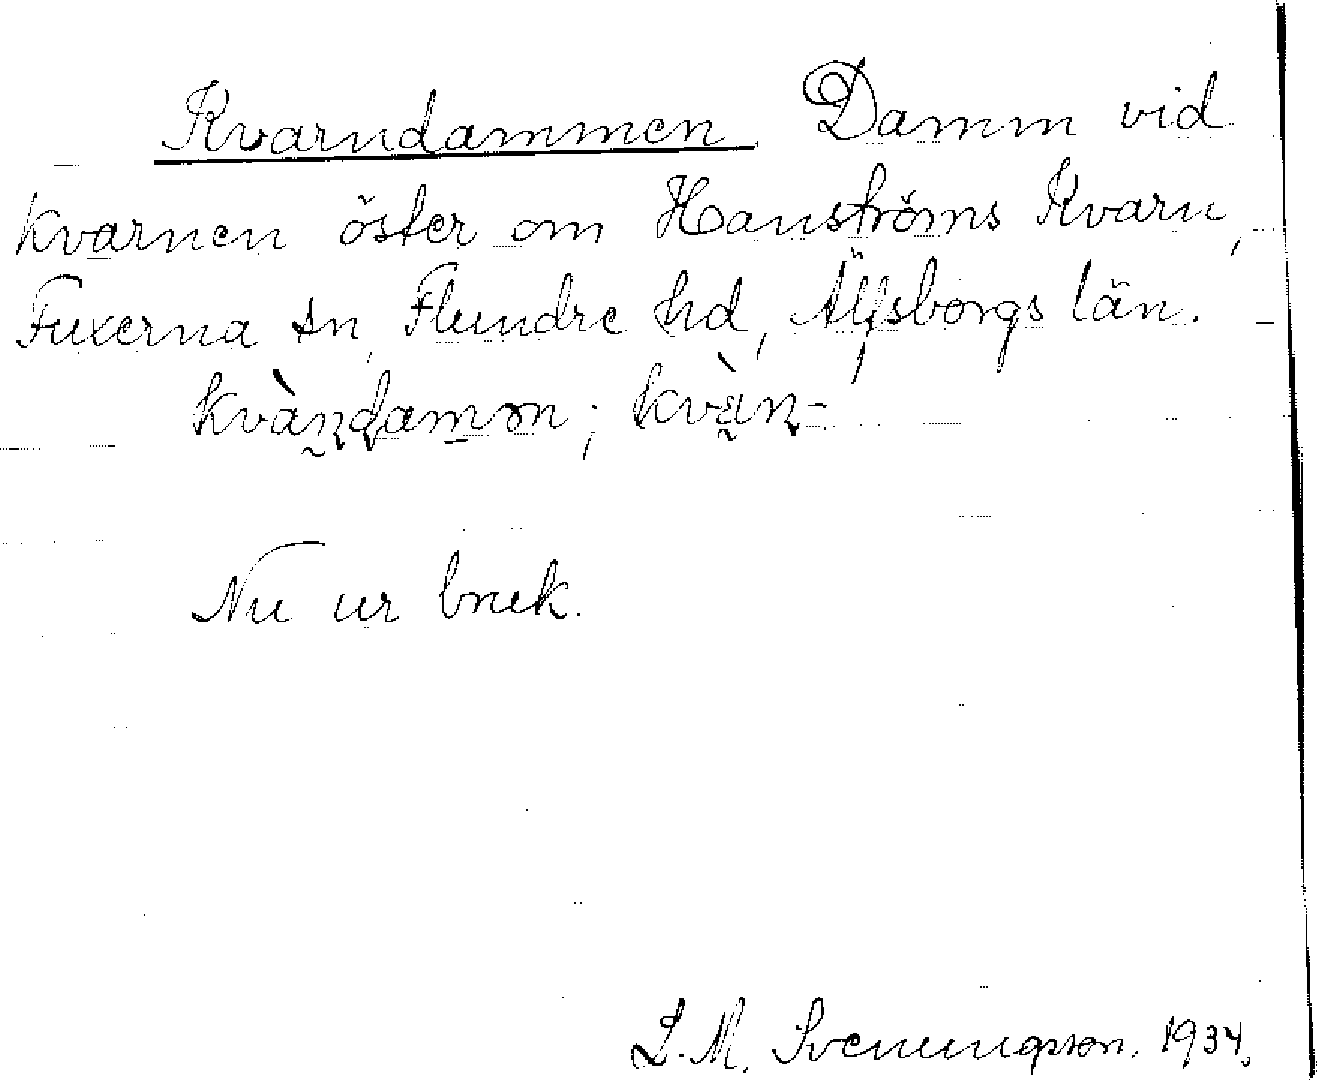 Kvarndammen Damm vid
kvarnen öster om Hanströms Kvarn,
Fuxerna sn, Flundre hd, Älfsborgs län.
kvàn̥ɖamən; kvàɳ-
Nu ur bruk.
L. M. Svenungsson. 1934.